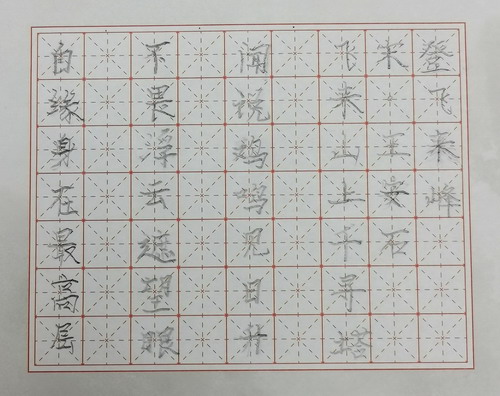 登飞来峰
宋·王安石
飞来山上千寻塔
闻说鸡鸣见日升
不畏浮云遮望眼
自缘身在最高层